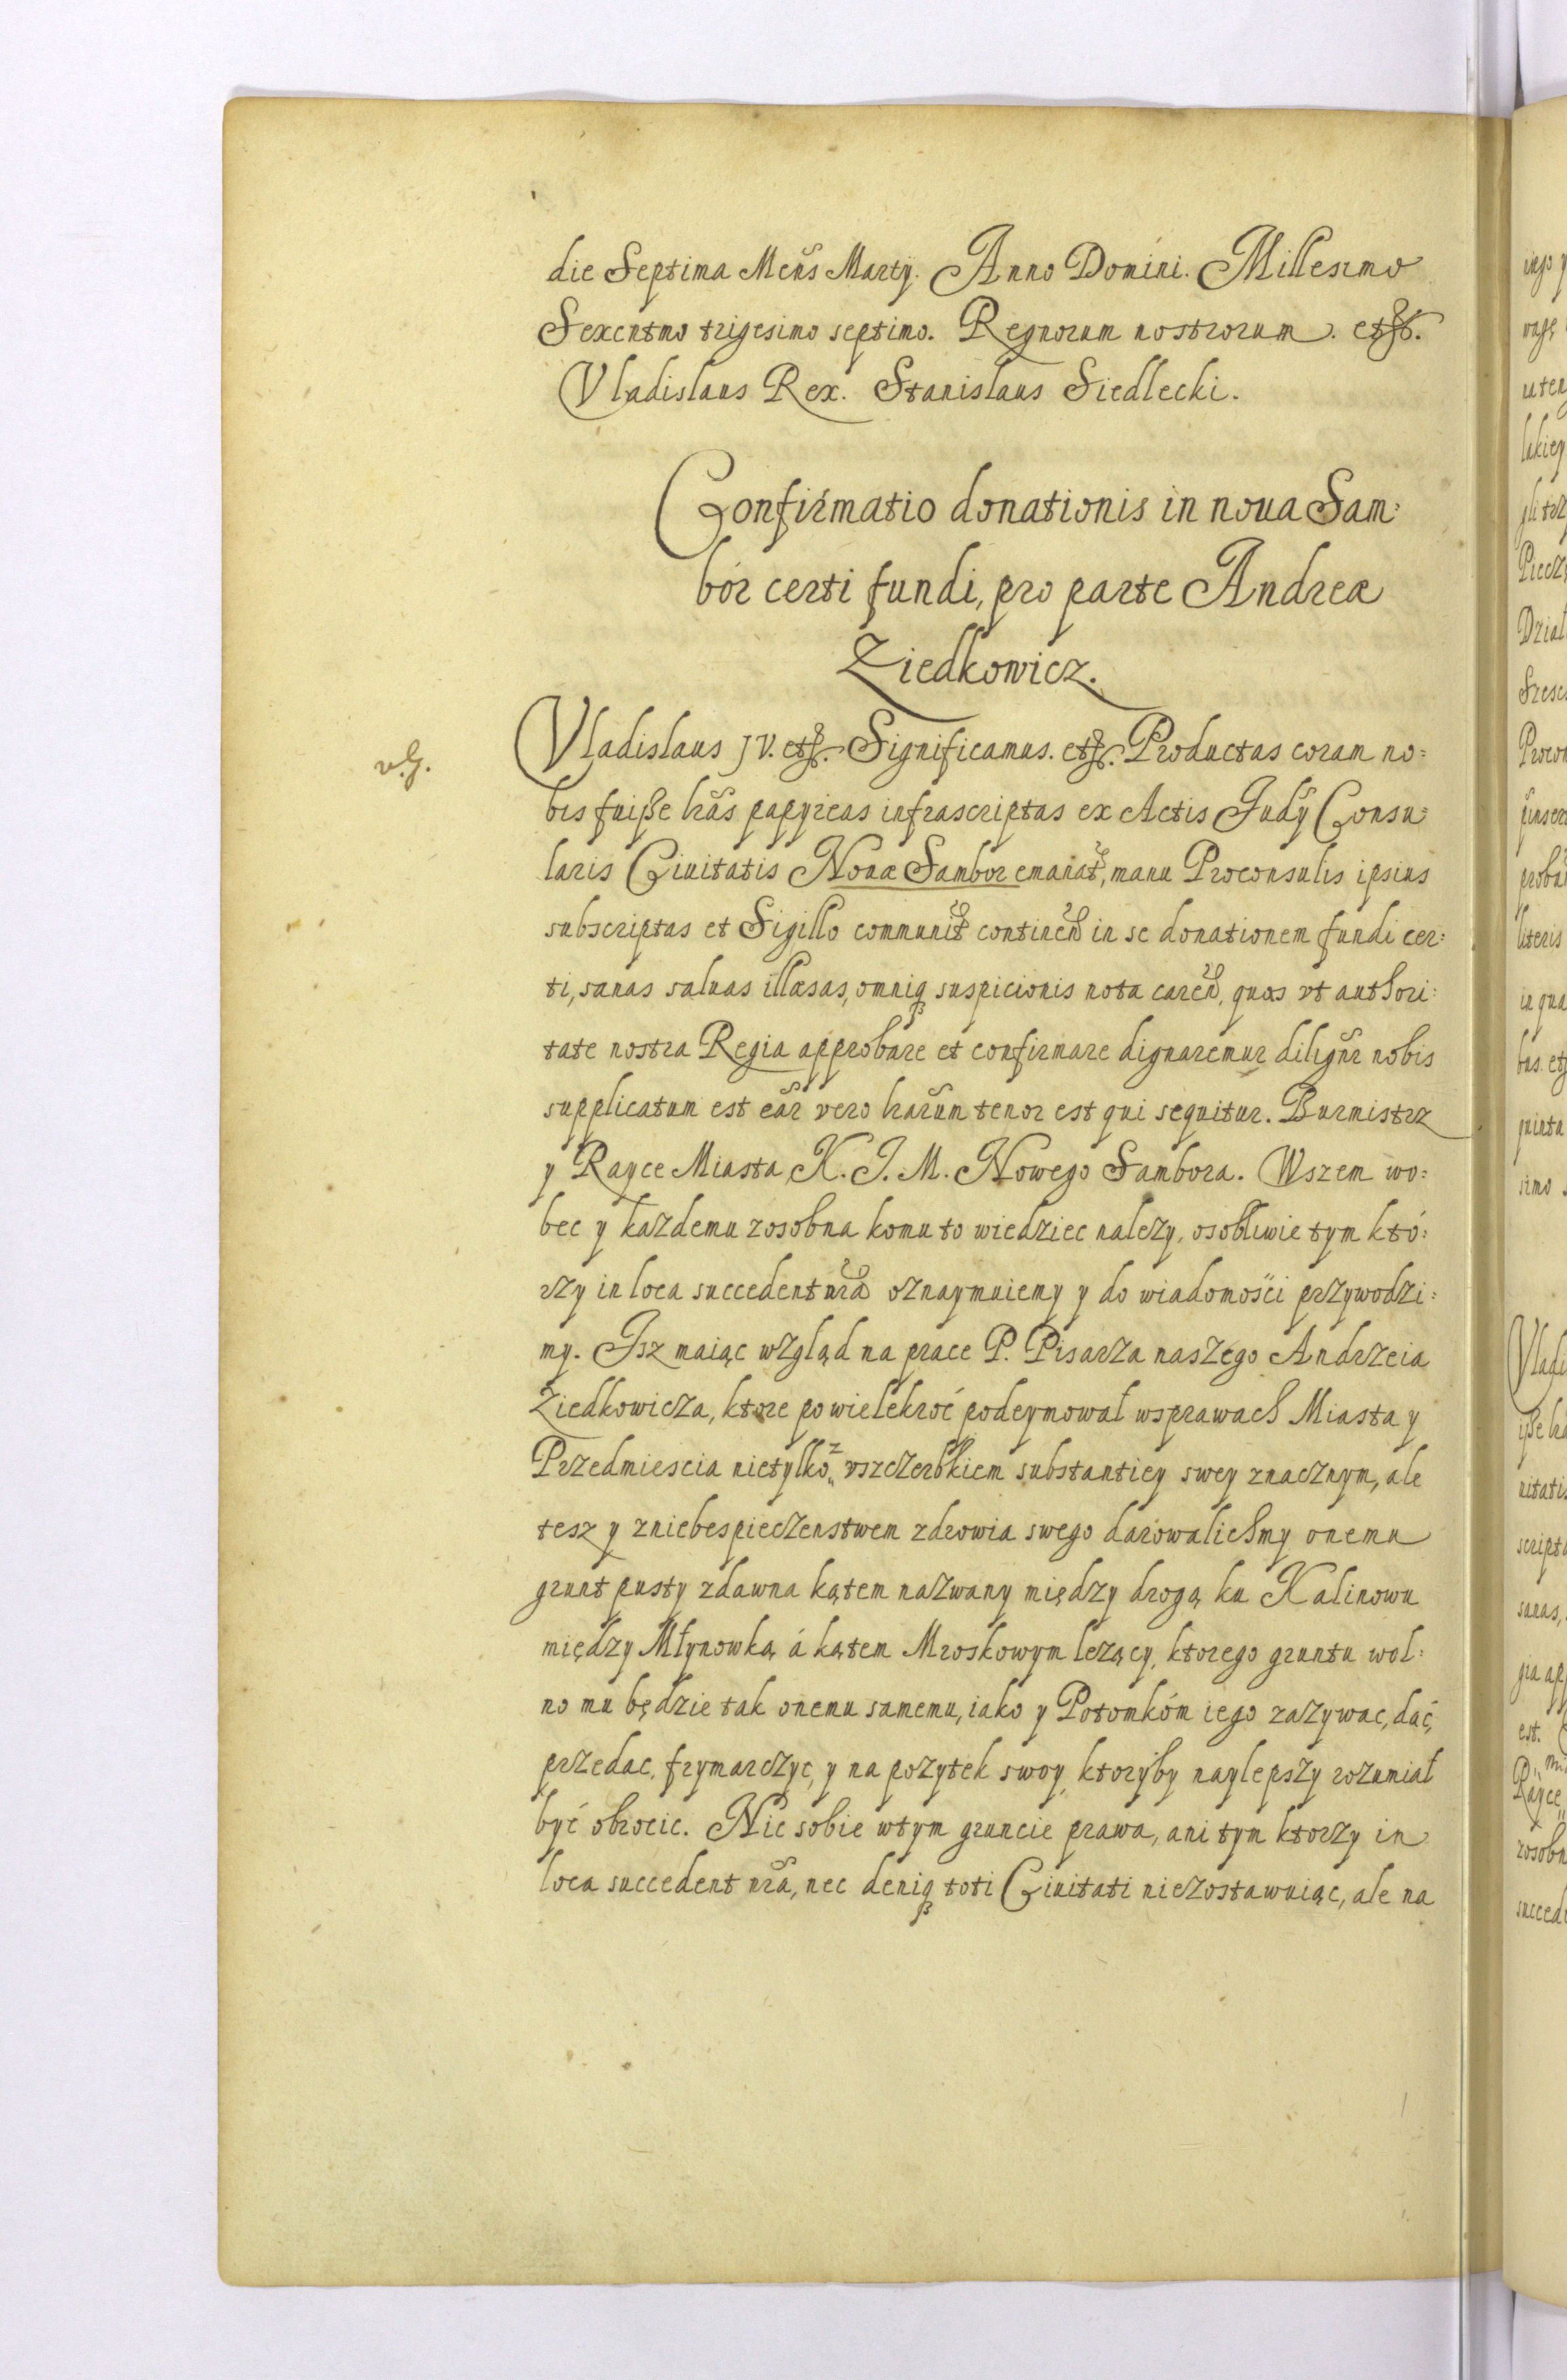 die Septima Mens̃ Martÿ. Anno Domini. Millesimo
Sexcntmo trigesimo septimo. Regnorum nostrorum. etc.
Vladislaus Rex. Stanislaus Siedlecki.
Confirmatio donationis in noua Sam:
bór certi fundi, pro parte Andreæ
Ziedkowicz.
v.G.
Vladislaus JV. etc. Significamus. etc. Productas coram no:
bis fuiße lrãs papyreas infrascriptas ex Actis Judÿ Consu:
laris Ciuitatis Nouæ Sambor emanat, manu Proconsulis ipsius
subscriptas et Sigillo communit continen in se donationem fundi cer:
ti, sanas saluas illæsas, omniq suspicionis nota caren, quas vt authori:
tate nostra Regia approbare et confirmare dignaremur diligñr nobis
supplicatum est eãr vero lrarũm tenor est qui sequitur. Burmistrz
y Rayce Miasta K. J. M. Nowego Sambora. Wszem wo:
bec y kazdemu zosobna komu to wiedziec nalezy, osobliwie tym któ:
rzy in loca succedent nrã oznaymuiemy y do wiadomości przywodzi:
my. Jsz maiąc wzgląd na prace P. Pisarza naszego Andrzeia
Ziedkowicza, ktore powielekroć podeymował wsprawach Miasta y
Przedmiescia nietylko z vszczerbkiem substantiey swey znacznym, ale
tesz y zniebespieczenstwem zdrowia swego darowalichmy onemu
grunt pusty zdawna kątem nazwany między drogą ku Kalinowu
między Młynowką á kątem Mroskowym lezący, ktorego gruntu wol:
no mu będzie tak onemu samemu, iako y Potomkóm iego zazywac, dać,
przedac, frymarczyc, y na pozytek swoy ktoryby naylepszy rozumiał
być obrocic. Nic sobie wtym gruncie prawa, ani tym ktorzy in
loca succedent nrã, nec deniq toti Ciuitati niezostawuiąc, ale na